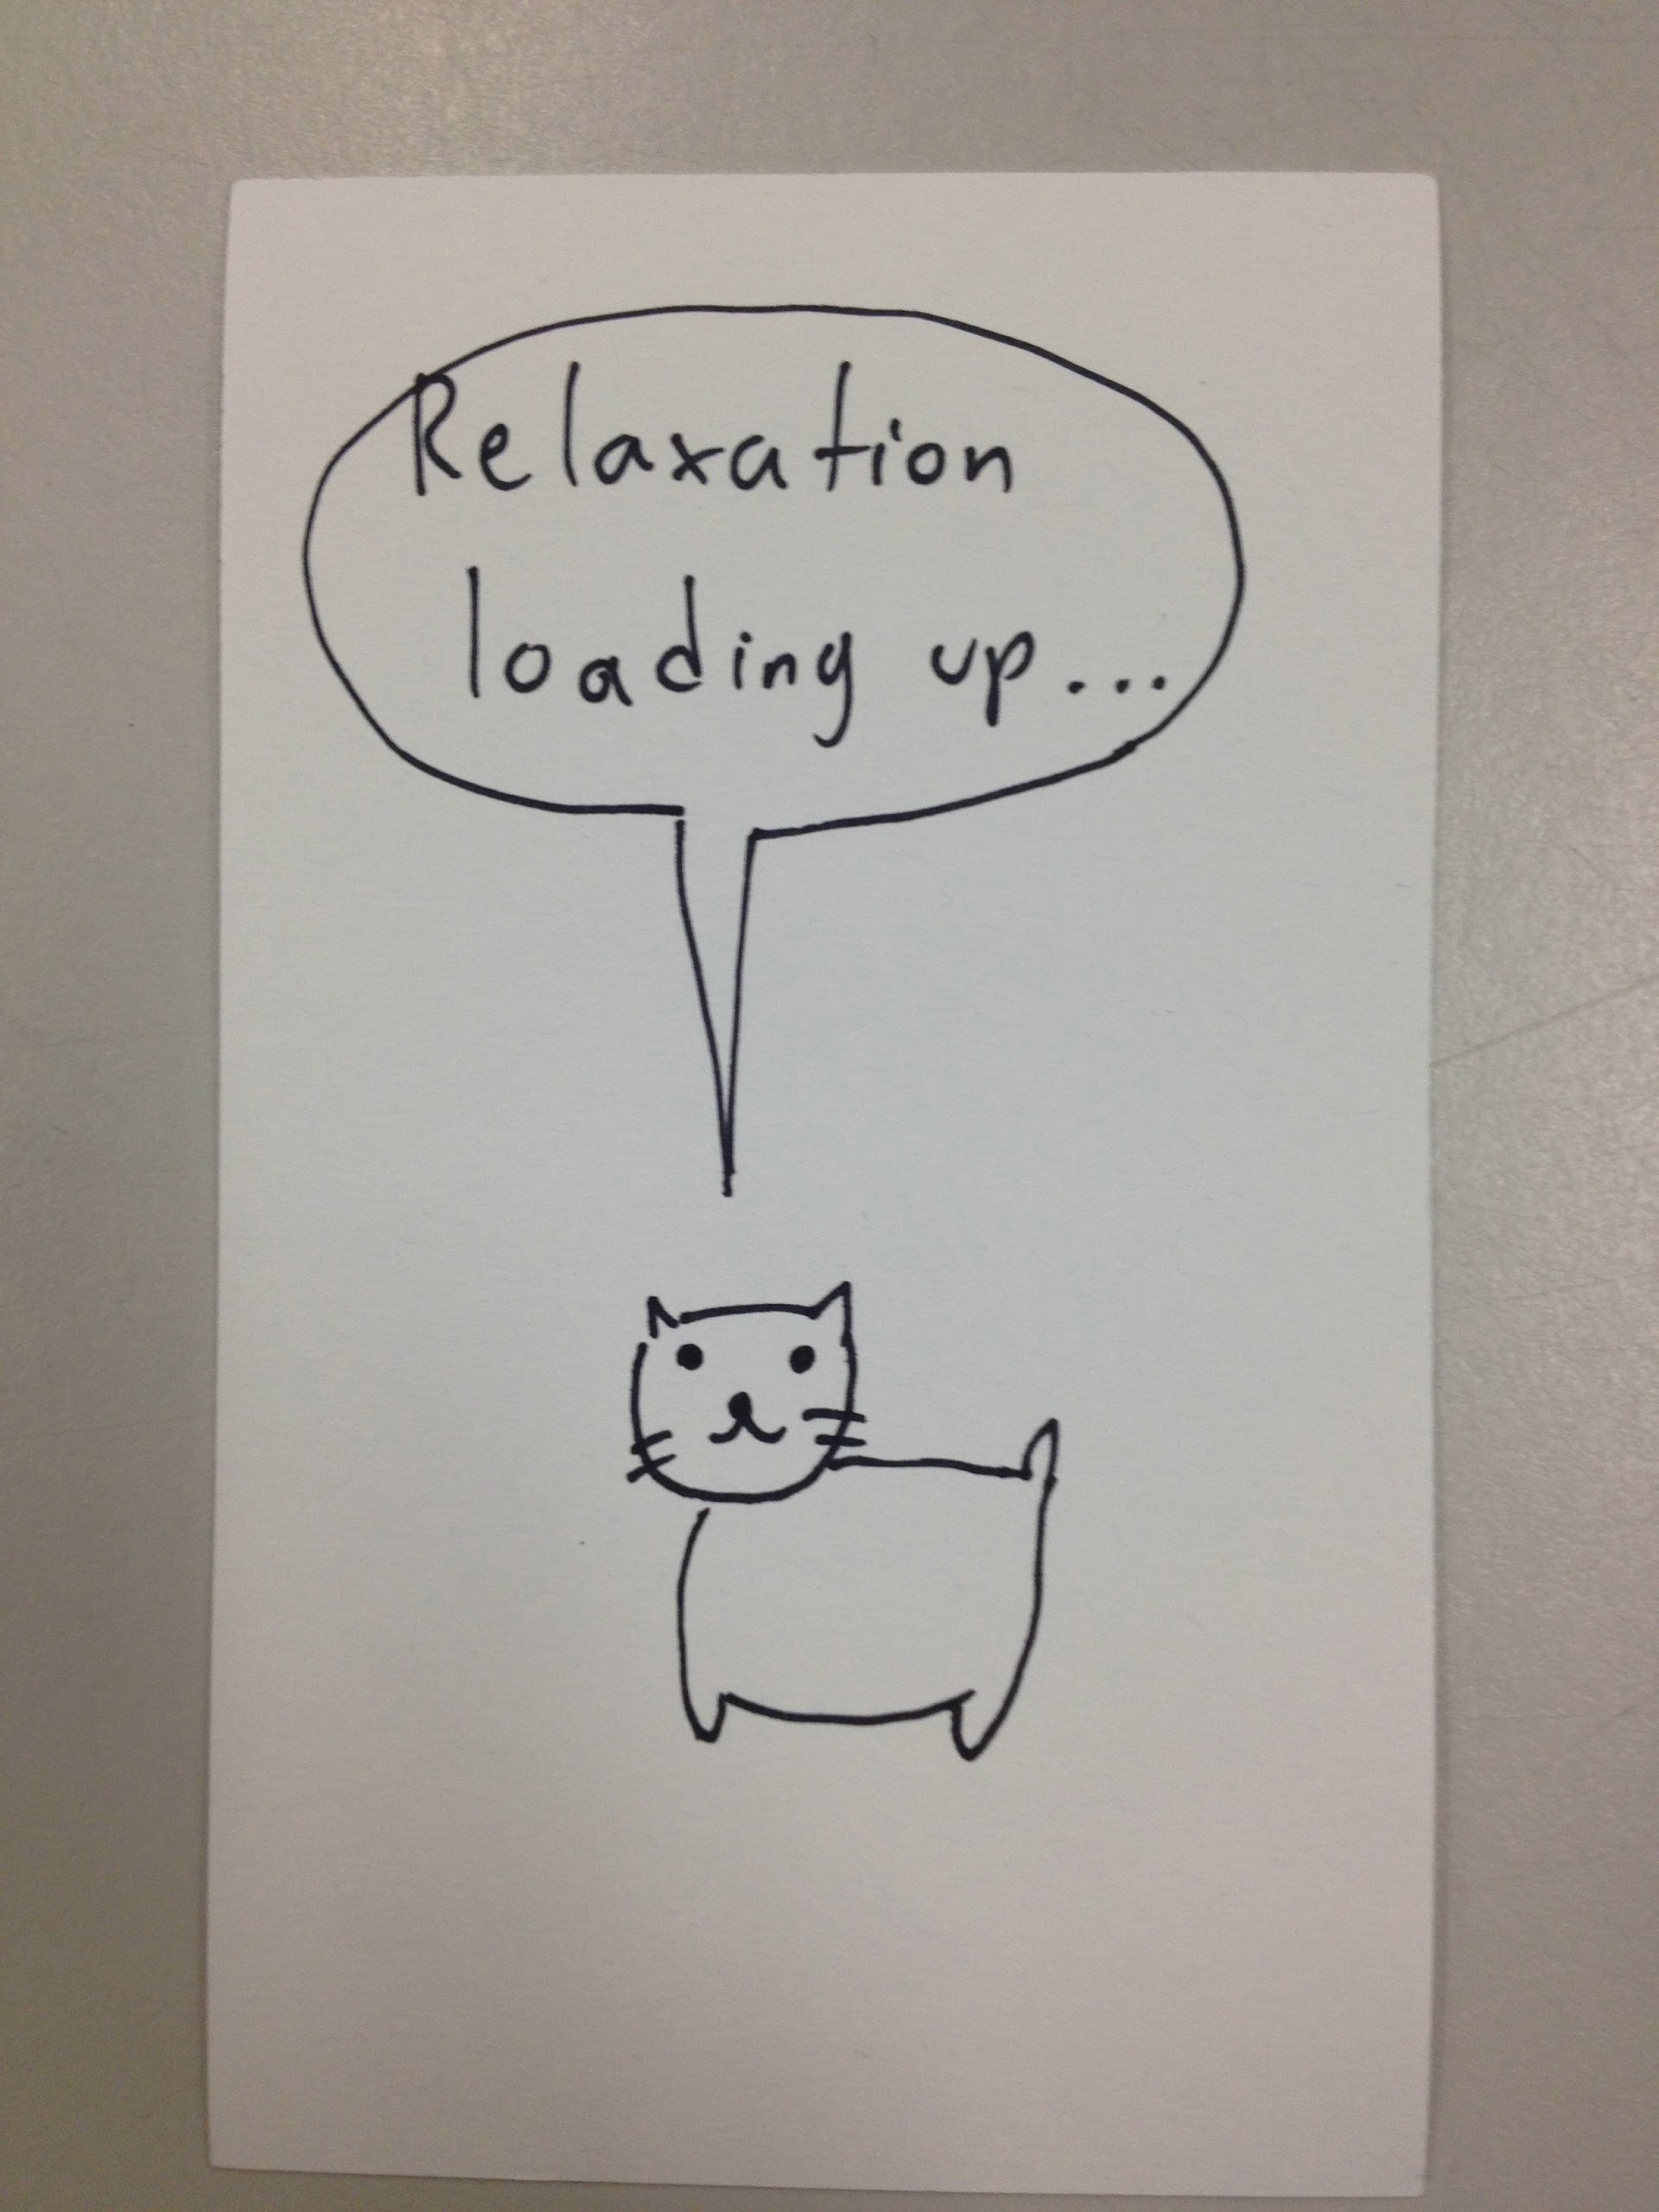 Relaxation
loading up...